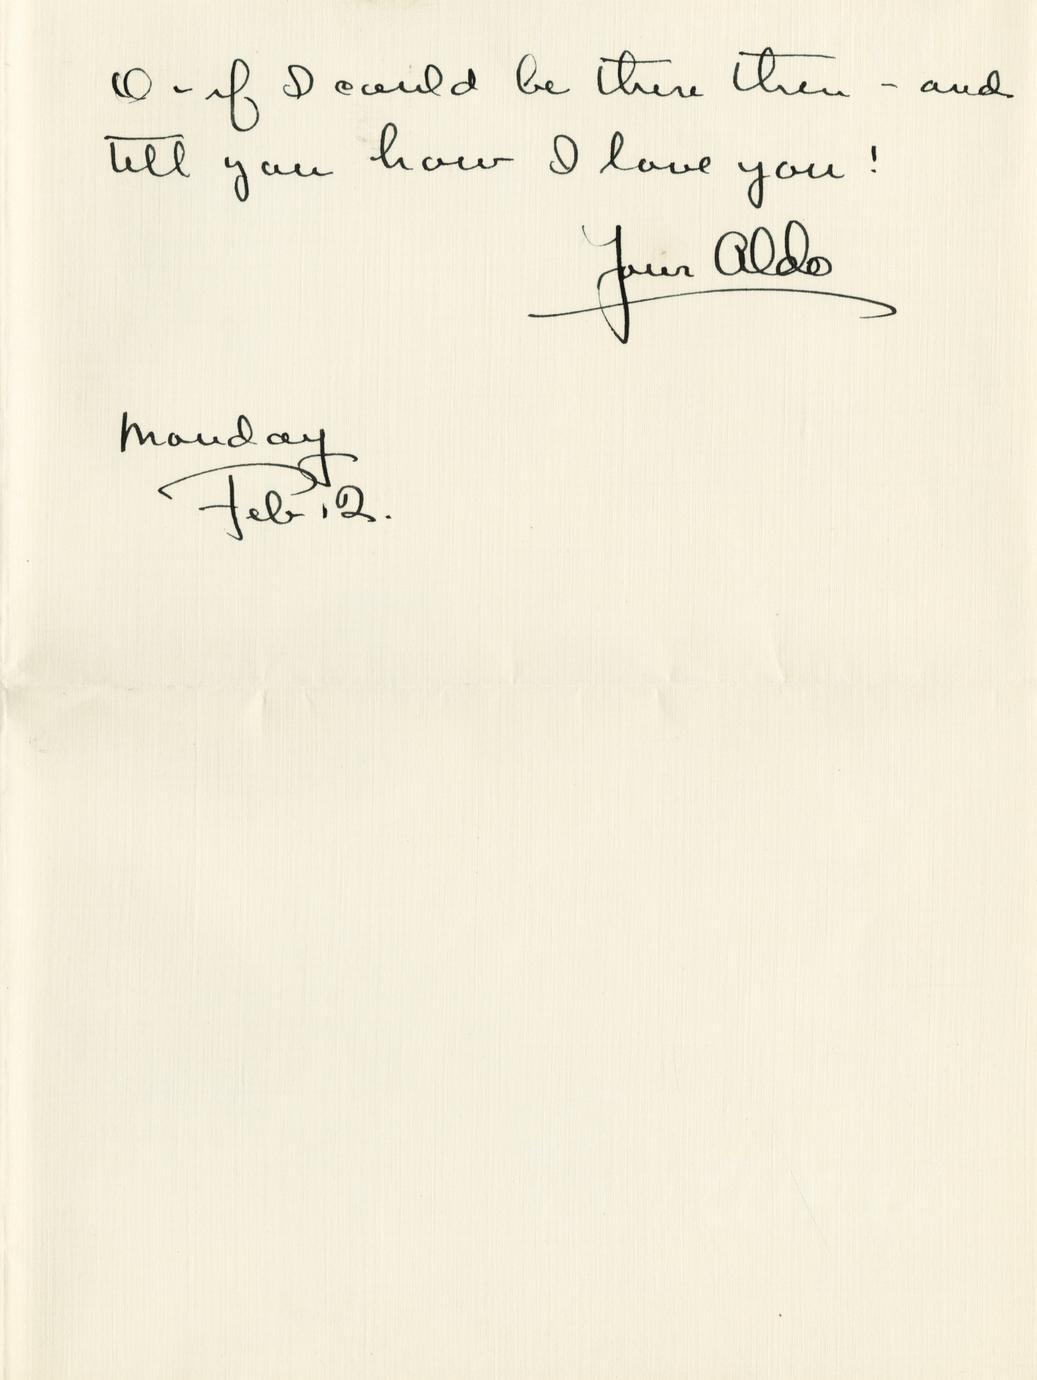 O - if I could be there then - and
tell you how I love you!
Your Aldo
Monday
Feb 12.